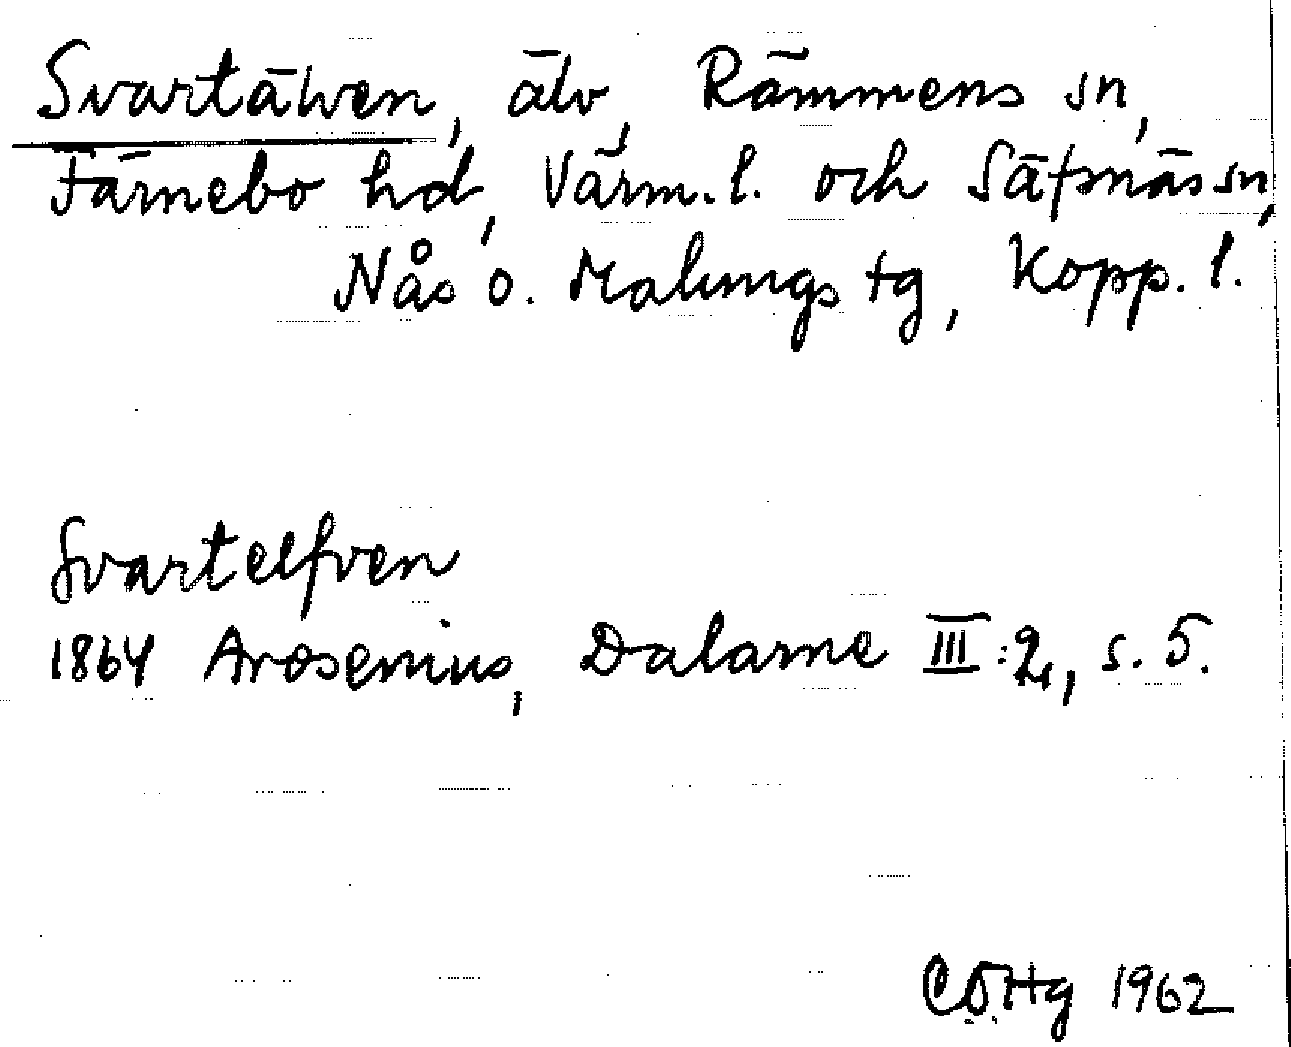 Svartälven, älv, Rämmens sn,
Färnebo hd, Värm. l. och Säfsnäs sn,
Nås o. Malungs tg, Kopp. l.
Svartelfven
1864 Arosenius, Dalarne III:2, s. 5.
1962